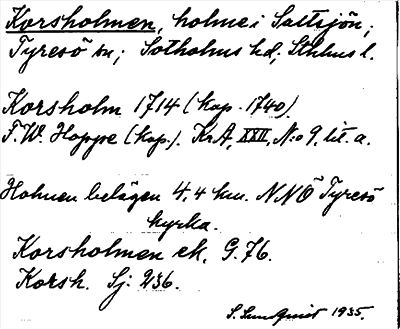 Korsholmen, holme i Saltsjön,
Tyresö sn; Sotholms hd; Sthlms l.
Korsholm 1714 (kop. 1740).
F. W. Hoppe (kop.). KrA, XXII, N:o 9, lit. a.
Holmen belägen 4,4 km. NNÖ Tyresö
kyrka.
Korsholmen ek. G. 76.
Korsh. Sj: 236.
S. Sundquist 1935.